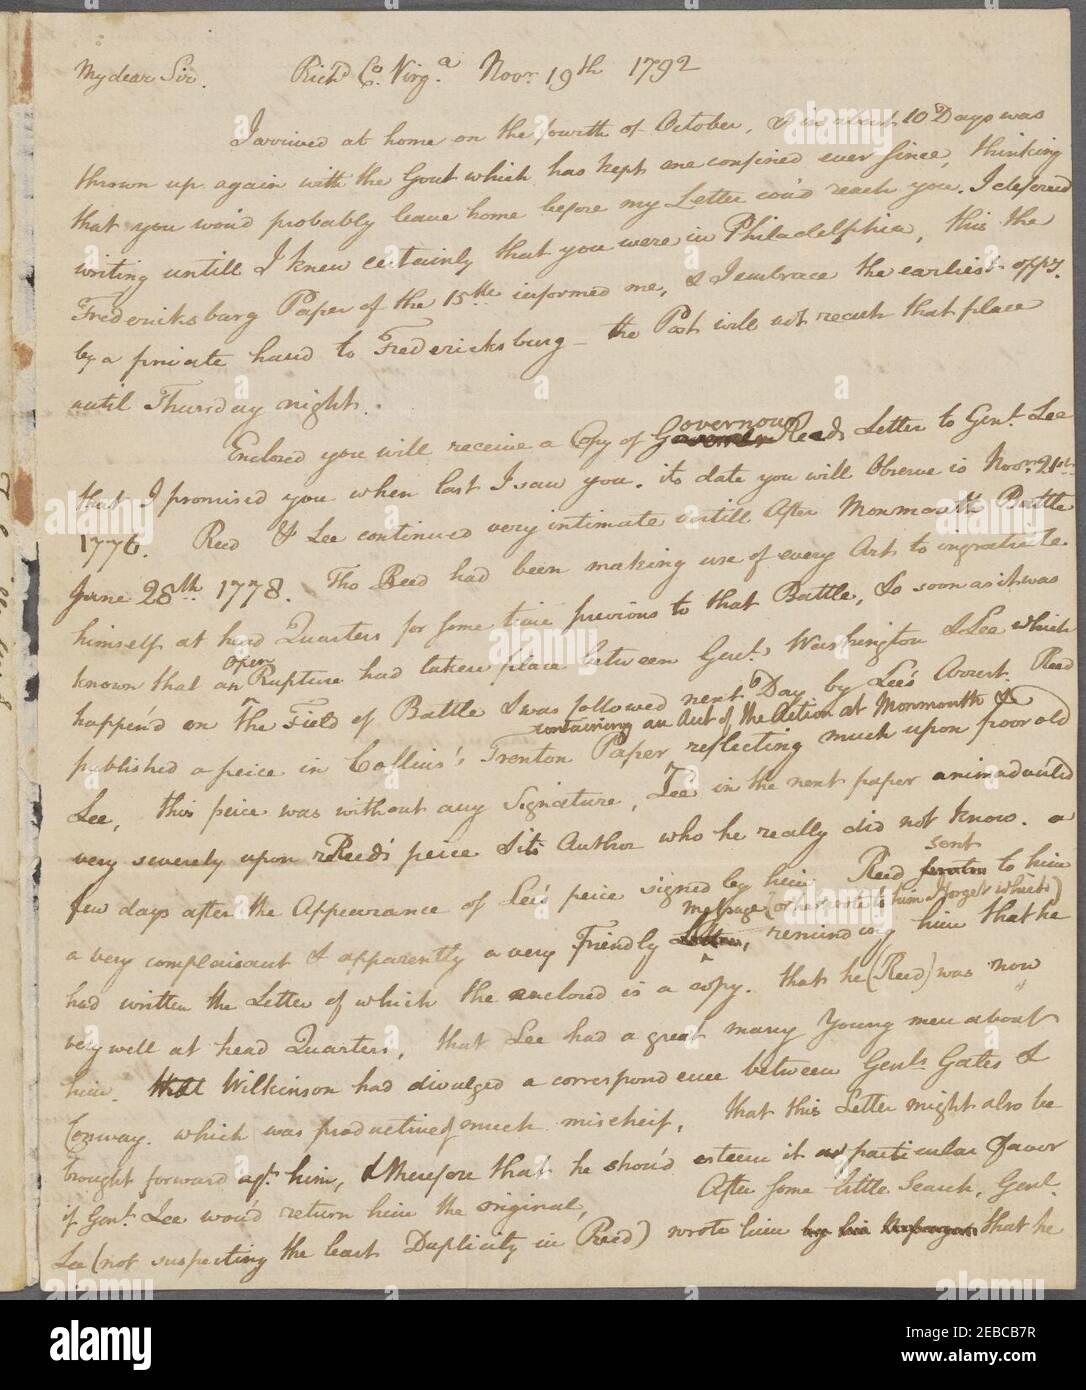 My dear Sir. Richd Co. Virga. Novr. 19th 1792
I arrived at home on the fourth of October, & in about 10 Days was
thrown up again with the Gout which has kept me confined ever since, thinking
that you wou'd probably leave home before my Letter cou'd reach you. I defered
writing untill I knew certainly that you were in Philadelphia, this the
Fredericksburg Paper of the 15th informed me, & I embrace the earliest oppy.
by a private hand to Fredericksburg - the Post will not reach that place
until Thursday night.
Enclosed you will receive a Copy of Governour Reeds Letter to Genl. Lee
that I promised you when last I saw you. its date you will Observe is Novr. 21st
1776. Reed & Lee continued very intimate untill After Monmouth Battle
June 28th 1778. Tho Reed had been making use of every Art to ingratiate
himself at head Quarters for some time previous to that Battle, So soon as it was
known that an open Rupture had taken place between Genl. Washington & Lee which
happen'd on the Field of Battle & was followed next Day by Lee's Arrest. Reed
published a peice in Collins's Trenton Paper containing an Acct of the Action at Monmouth & reflecting much upon poor old
Lee, this peice was without any Signature, Lee in the next paper animadverted
very severely upon Reed's peice & its Author who he really did not know. a
few days after the Appearance of Lee's peice signed by him Reed sent to him
a very complaisant & apparently a very Friendly message (or he wrote to him I forget which) reminding him that he
had written the Letter of which the enclosed is a copy. that he (Reed) was now
very well at head Quarters, that Lee had a great many Young men about
him. Wilkinson had divulged a correspondence between Genls. Gates &
Conway. which was productive of much mischeif, that this Letter might also be
brought forward agt. him, & therefore that he shou'd esteem it a particular favor
if Genl. Lee wou'd return him the original, After some little Search, Genl.
Lee (not suspecting the least Duplicity in Reed) wrote him that he
alamy
Image ID: 2EBCB7R
www.alamy.com